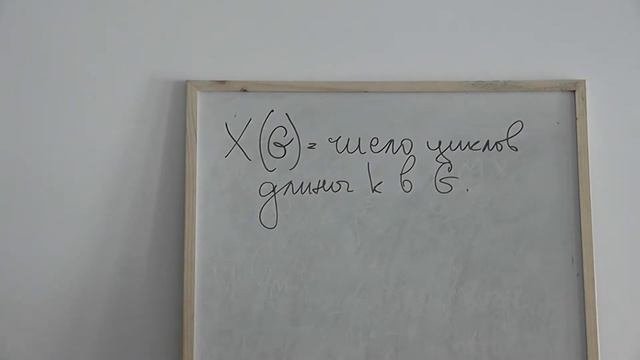 X(G) = число циклов
длины k в G.